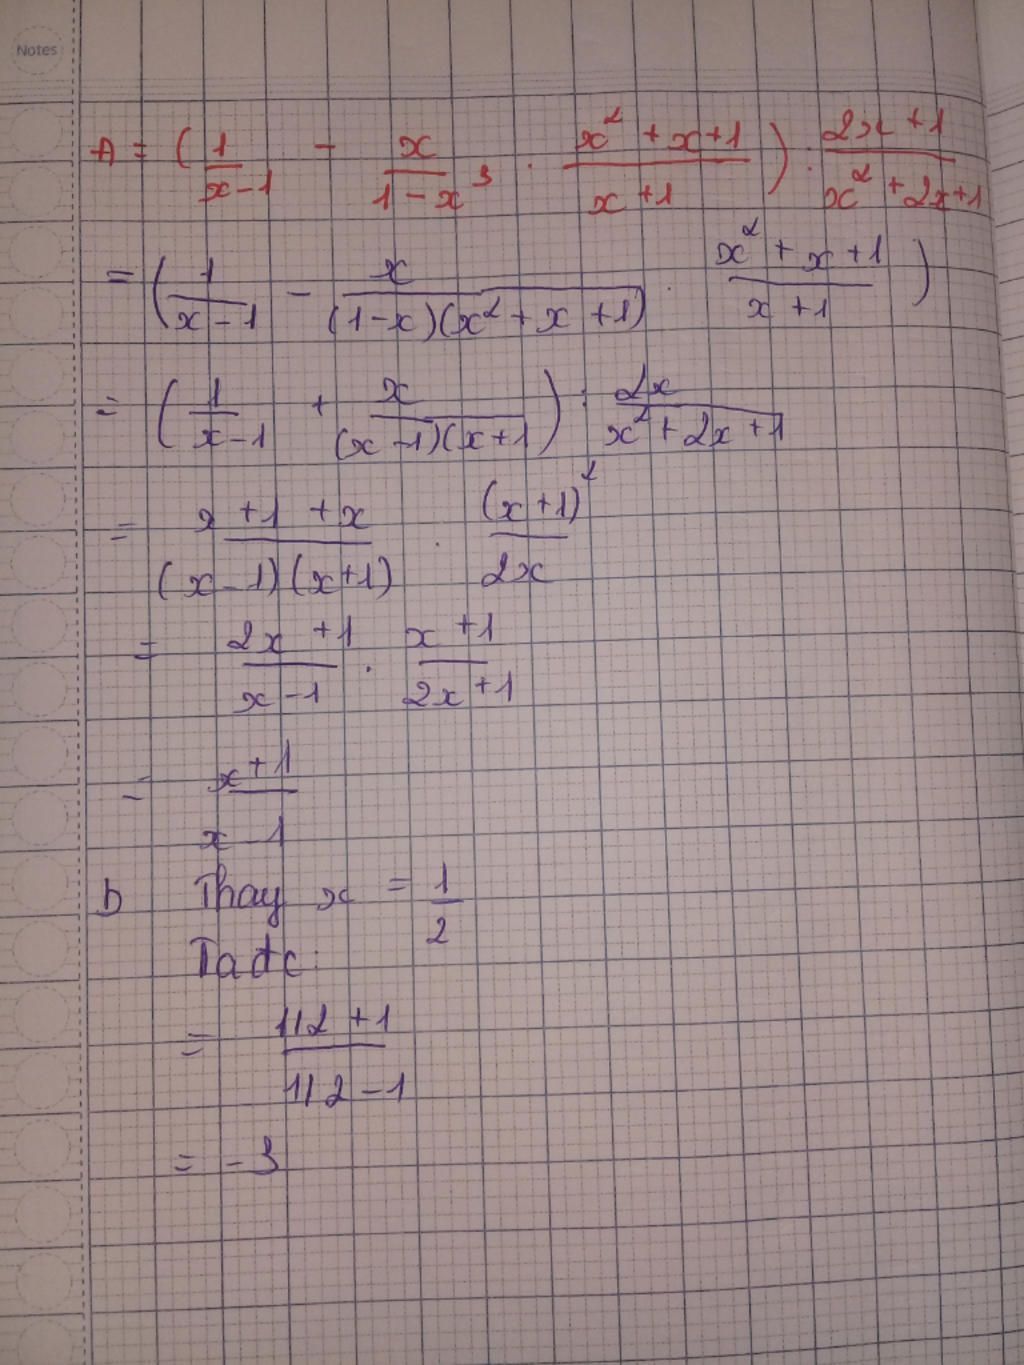 Notes
A = (1/(x-1) - x/(1-x³) . (x²+x+1)/(x+1)) : (2x+1)/(x²+2x+1)
= (1/(x-1) - x/((1-x)(x²+x+1)) . (x²+x+1)/(x+1))
= (1/(x-1) + x/((x-1)(x+1))) : 2x/(x²+2x+1)
= (x+1+x)/((x-1)(x+1)) . (x+1)²/2x
= (2x+1)/(x-1) . (x+1)/(2x+1)
= (x+1)/(x-1)
b Thay x = 1/2
Ta đc:
= (1/2+1)/(1/2-1)
= -3